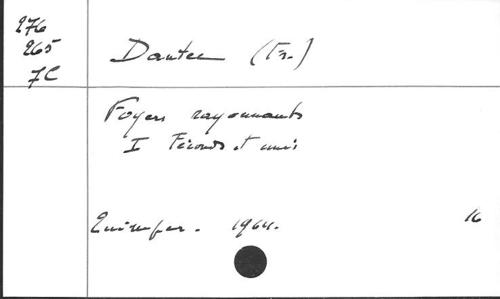 276
265
7C
Dantec (Fr.)
Foyers rayonnants
I Féconds et unis
Quimper. 1964.
16